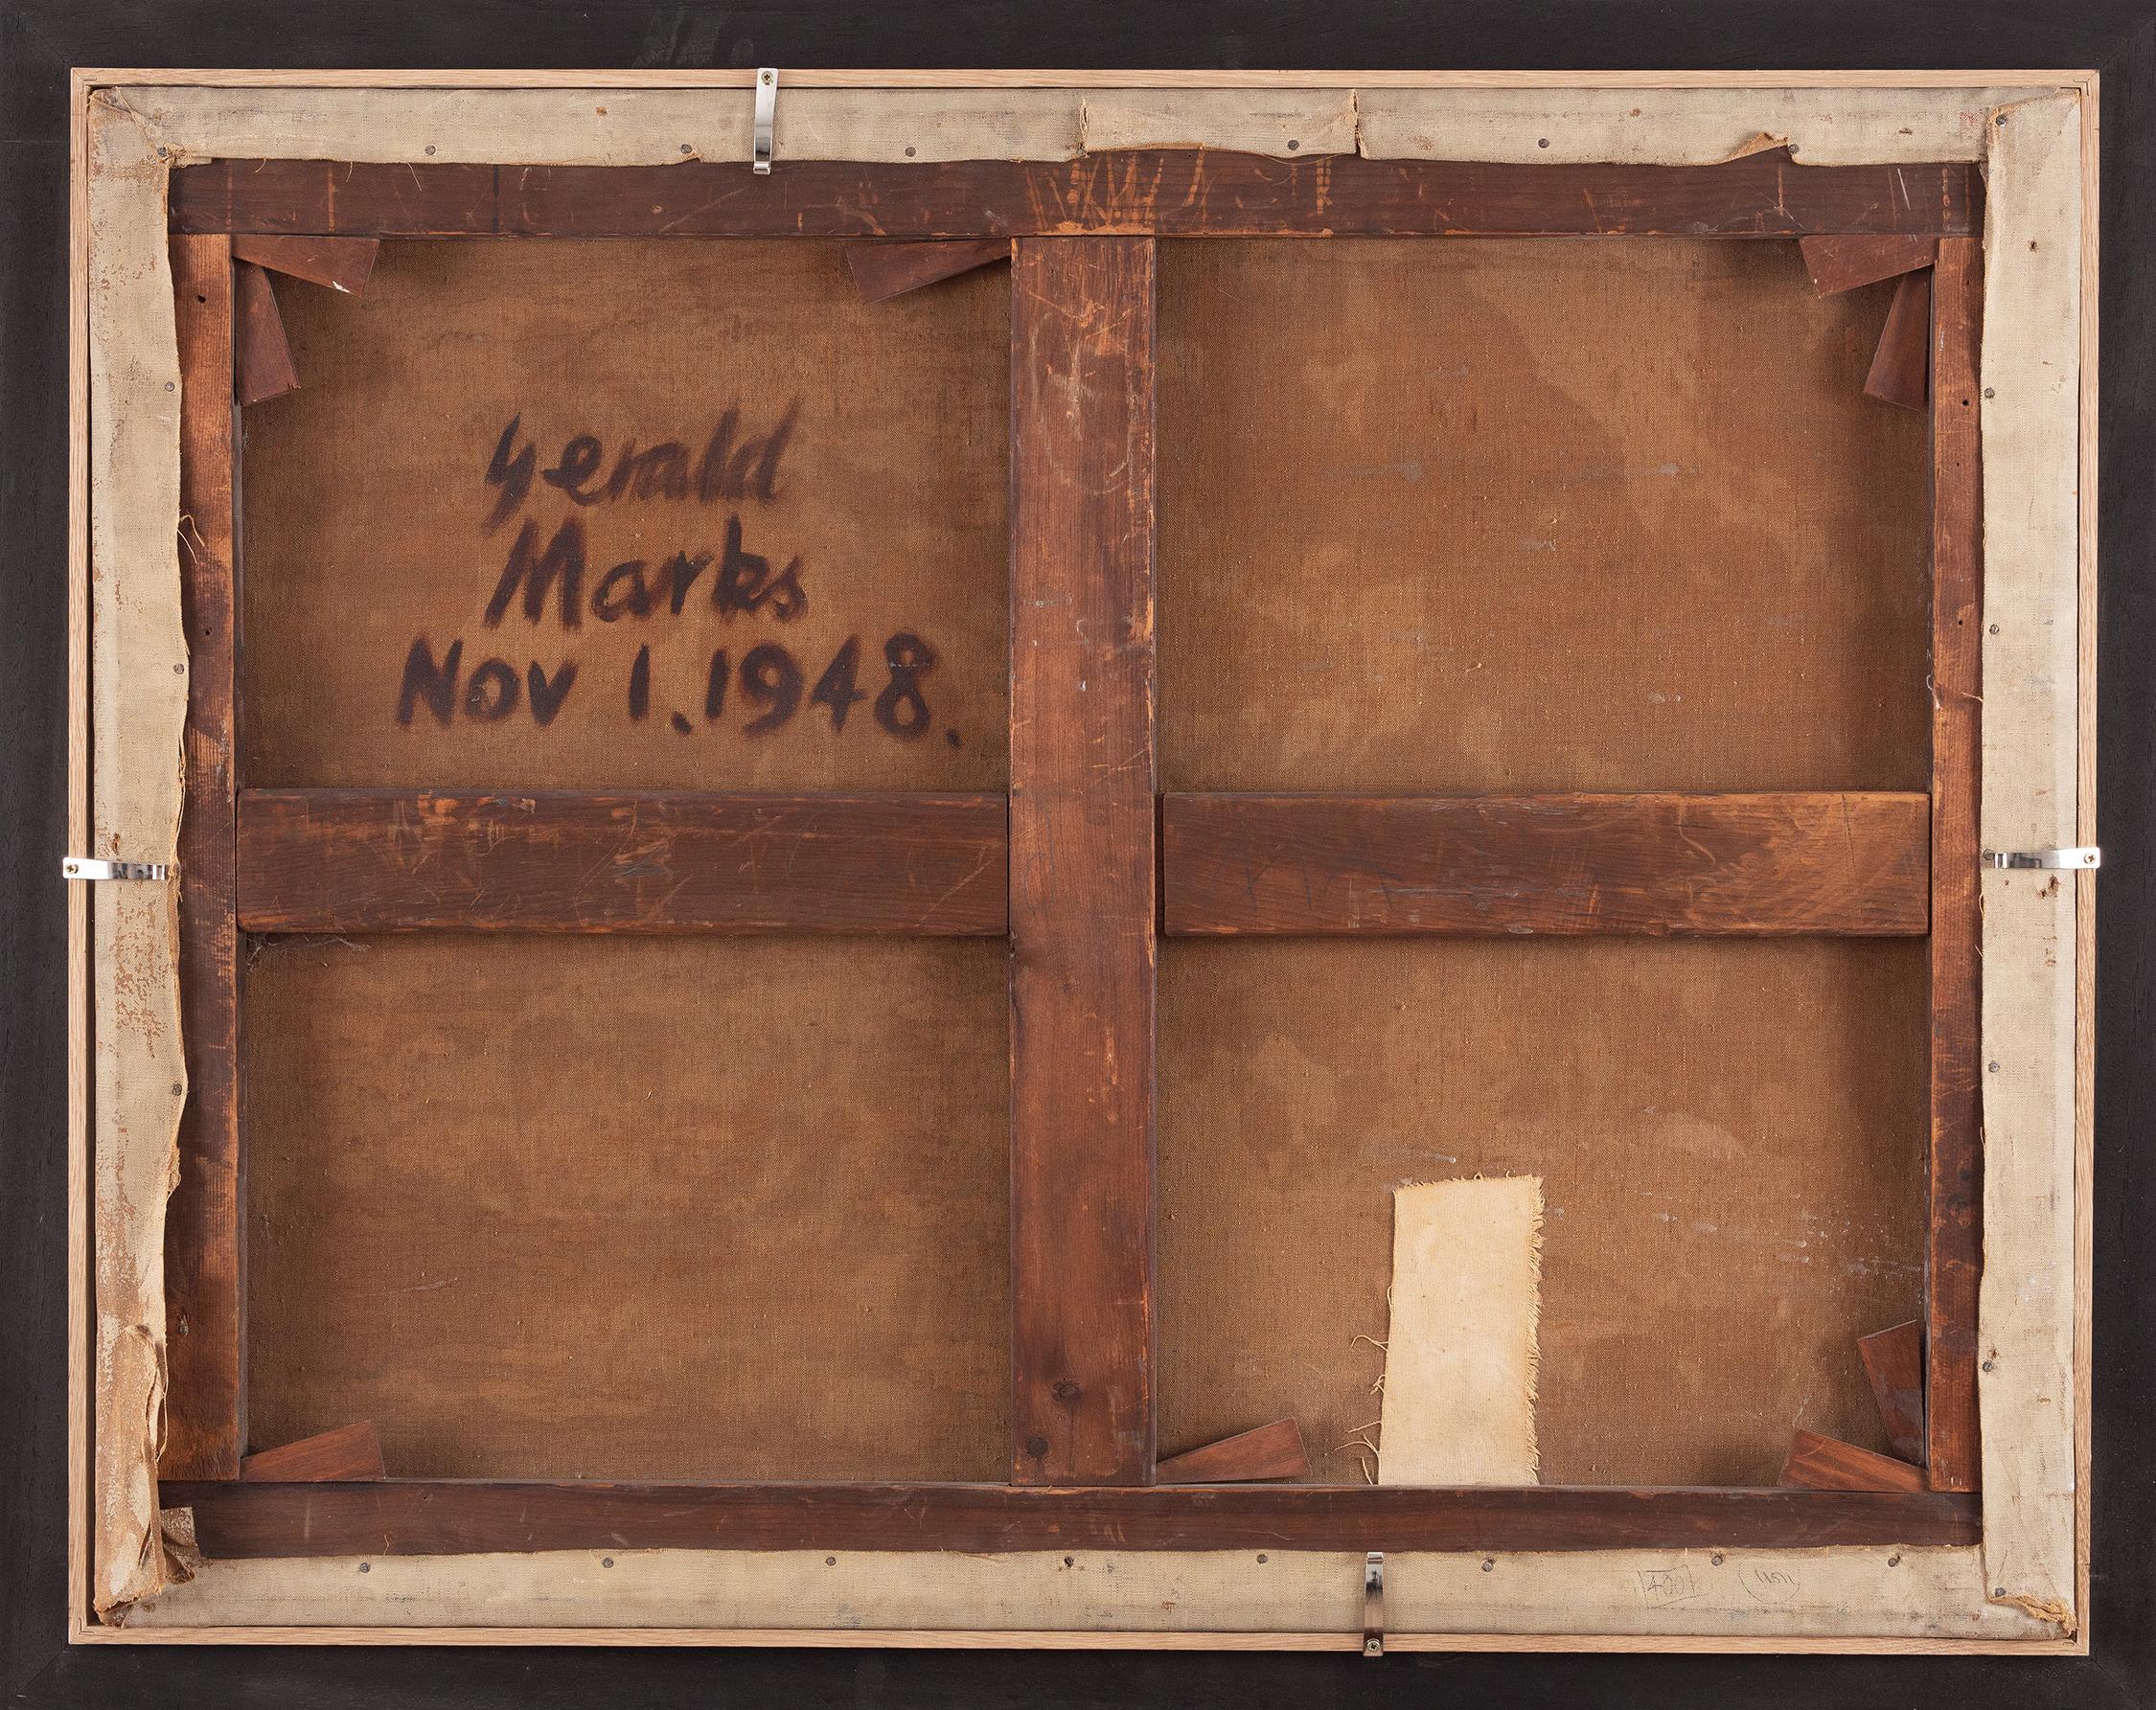 Gerald
Marks
Nov 1. 1948.